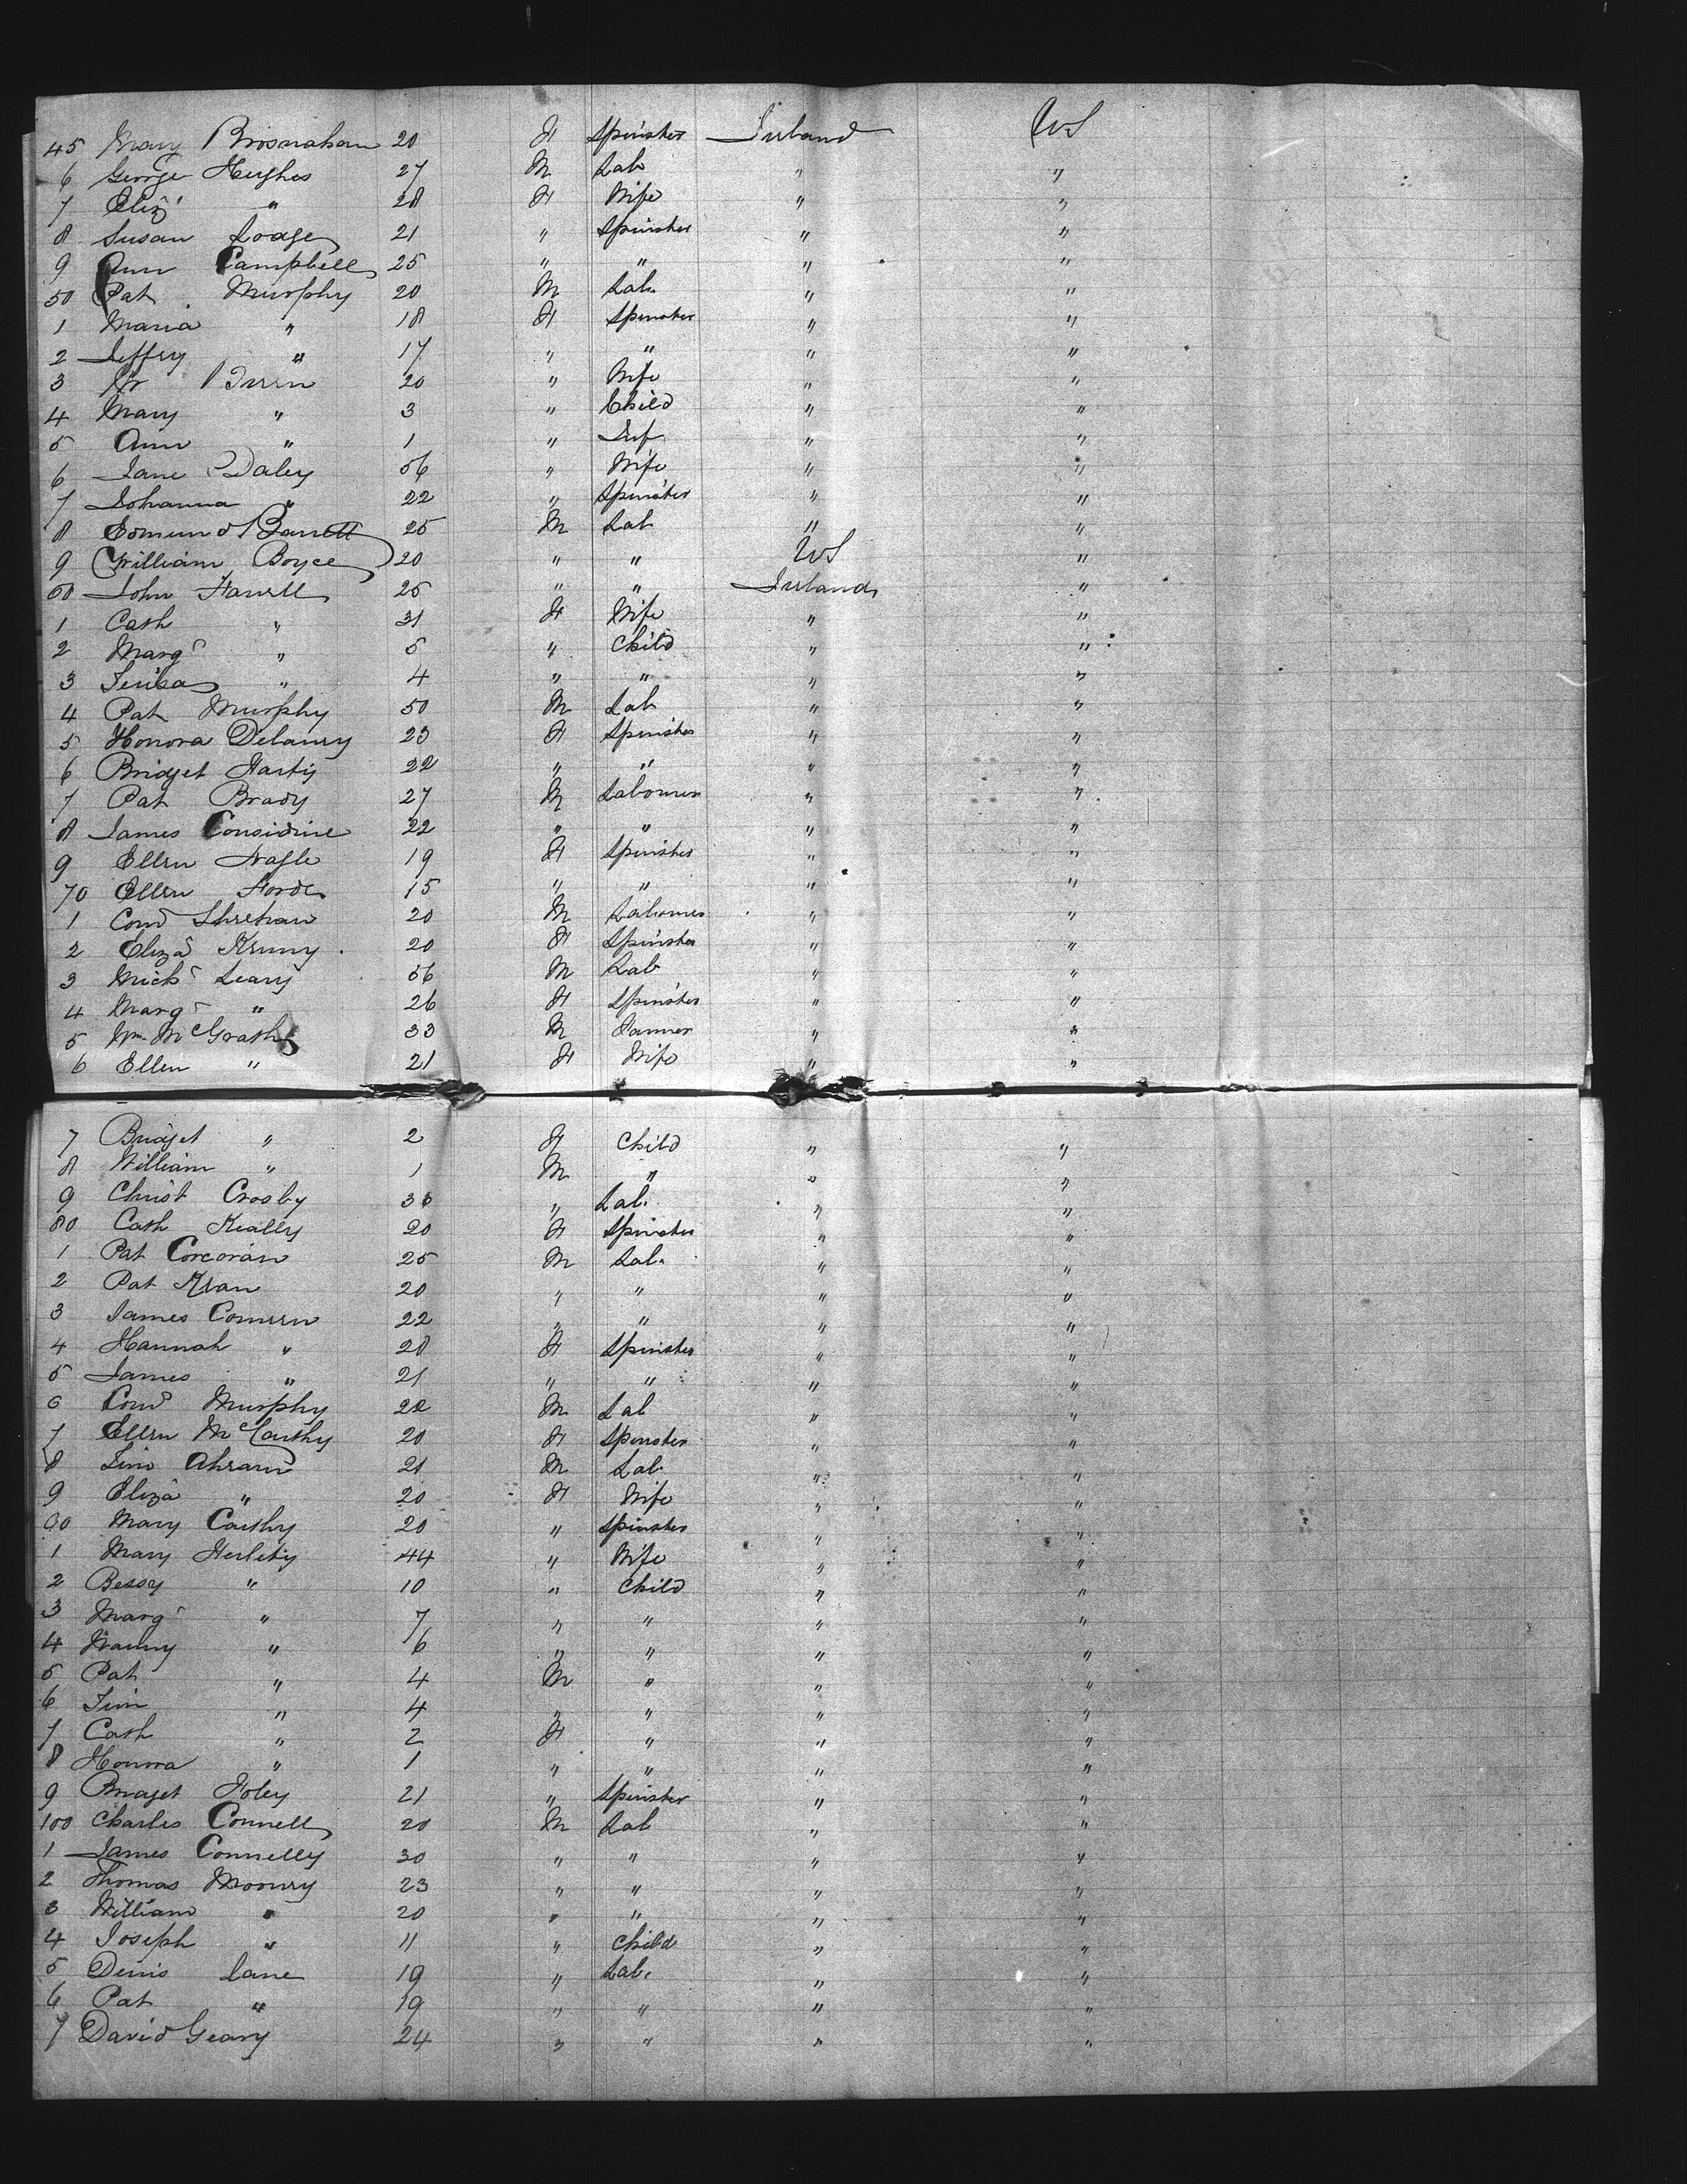 45 Mary Brosnahan 20 F Spinster Ireland US
6 George Hughes 27 M Lab " "
7 Eliz " 28 F Wife " "
8 Susan Lodge 21 " Spinster " "
9 Ann Campbell 25 " " " "
50 Pat Murphy 20 M Lab " "
1 Maria " 18 F Spinster " "
2 Jeffry " 17 " " " "
3 20 " Wife " "
4 Mary " 3 " Child " "
5 Ann " 1 " Inf " "
6 Jane Daley 56 " Wife " "
7 Johanna " 22 " Spinster " "
8 Edmund Barrett 25 M Lab " "
9 William Boyce 20 " " US "
60 John Farrell 25 " " Ireland "
1 Cath " 31 F Wife " "
2 Marg " 5 " Child " "
3 " 4 " " " "
4 Pat Murphy 50 M Lab " "
5 Honora Delaney 23 F Spinster " "
6 Bridget Hartiy 22 " " " "
7 Pat Brady 27 M Labourer " "
8 James Considine 22 " " " "
9 Ellen Nagle 19 F Spinster " "
70 Ellen Forde 15 " " " "
1 Cond Sheehan 20 M Labourer " "
2 Eliza Kenny 20 F Spinster " "
3 Mich Leary 56 M Lab " "
4 Marg " 26 F Spinster " "
5 Wm McGrath 33 M Farmer " "
6 Ellen " 21 F Wife " "
7 Bridget " 2 F Child " "
8 William " 1 M " " "
9 Christ Crosby 36 " Lab. " "
80 Cath Keally 20 F Spinster " "
1 Pat Corcoran 25 M Lab. " "
2 Pat Kean 20 " " " "
3 James Comeen 22 " " " "
4 Hannah " 28 F Spinster " "
5 James " 21 " " " "
6 Cond Murphy 22 M Lab " "
7 Ellen McCarthy 20 F Spinster " "
8 Tim Ahearn 21 M Lab " "
9 Eliza " 20 F Wife " "
90 Mary Carthy 20 " Spinster " "
1 Mary Herlihy 44 " Wife " "
2 Bessy " 10 " Child " "
3 Marg " 7 " " " "
4 Nanny " 6 " " " "
5 Pat " 4 M " " "
6 Tim " 4 " " " "
7 Cath " 2 F " " "
8 Honora " 1 " " " "
9 Bridget Foley 21 " Spinster " "
100 Charles Connell 20 M Lab " "
1 James Connelly 30 " " " "
2 Thomas Mooney 23 " " " "
3 William " 20 " " " "
4 Joseph " 11 " Child " "
5 Denis Lane 19 " Lab. " "
6 Pat " 19 " " " "
7 David Geary 24 " " " "